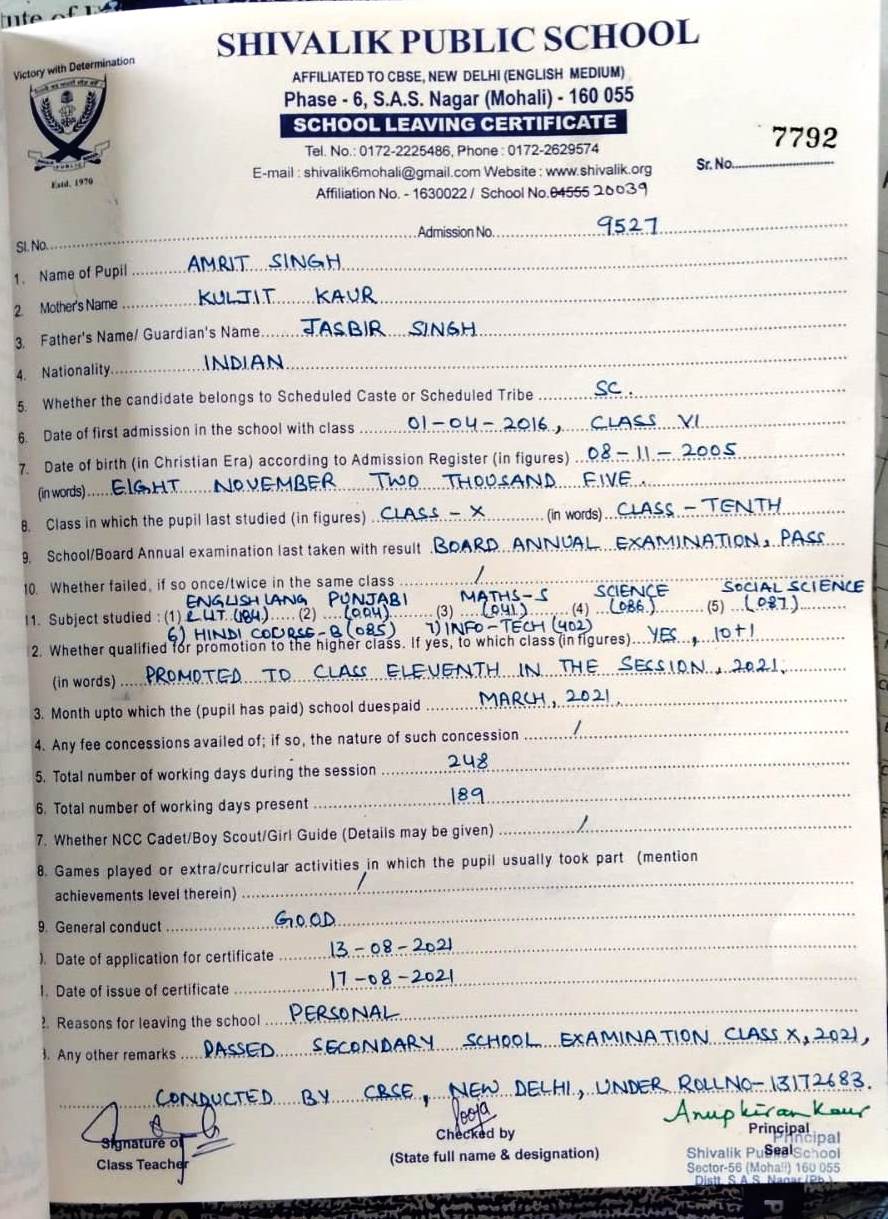 SHIVALIK PUBLIC SCHOOL
Victory with Determination
AFFILIATED TO CBSE, NEW DELHI (ENGLISH MEDIUM)
Phase - 6, S.A.S. Nagar (Mohali) - 160 055
SCHOOL LEAVING CERTIFICATE
7792
Tel. No.: 0172-2225486, Phone : 0172-2629574
Sr. No.
E-mail : shivalik6mohali@gmail.com Website : www.shivalik.org
Estd. 1970
Affiliation No. - 1630022 / School No. 04555 20039
Sl. No. Admission No. 9527
1. Name of Pupil AMRIT SINGH
2. Mother's Name KULJIT KAUR
3. Father's Name/ Guardian's Name JASBIR SINGH
4. Nationality INDIAN
5. Whether the candidate belongs to Scheduled Caste or Scheduled Tribe SC.
6. Date of first admission in the school with class 01-04-2016, CLASS VI
7. Date of birth (in Christian Era) according to Admission Register (in figures) 08-11-2005
(in words) EIGHT NOVEMBER TWO THOUSAND FIVE.
8. Class in which the pupil last studied (in figures) CLASS - X (in words) CLASS - TENTH
9. School/Board Annual examination last taken with result BOARD ANNUAL EXAMINATION, PASS
10. Whether failed, if so once/twice in the same class /
ENGLISH LANG PUNJABI MATHS-S SCIENCE SOCIAL SCIENCE
11. Subject studied : (1) & LIT. (184) (2) (004) (3) (041) (4) (086) (5) (087)
6) HINDI COURSE-B (085) 7) INFO-TECH (402)
2. Whether qualified for promotion to the higher class. If yes, to which class (in figures) YES, 10+1
(in words) PROMOTED TO CLASS ELEVENTH IN THE SESSION, 2021.
3. Month upto which the (pupil has paid) school duespaid MARCH, 2021.
4. Any fee concessions availed of; if so, the nature of such concession /
5. Total number of working days during the session 248
6. Total number of working days present 189
7. Whether NCC Cadet/Boy Scout/Girl Guide (Details may be given) /
8. Games played or extra/curricular activities in which the pupil usually took part (mention
achievements level therein) /
9. General conduct GOOD
). Date of application for certificate 13-08-2021
1. Date of issue of certificate 17-08-2021
2. Reasons for leaving the school PERSONAL
3. Any other remarks PASSED SECONDARY SCHOOL EXAMINATION CLASS X, 2021,
CONDUCTED BY CBSE, NEW DELHI, UNDER ROLLNO-13172683.
Pooja
Anupkiran Kaur
Signature of
Class Teacher
Checked by
(State full name & designation)
Principal
Seal
Principal
Shivalik Public School
Sector-56 (Mohali) 160 055
Distt. S.A.S. Nagar (Pb.)